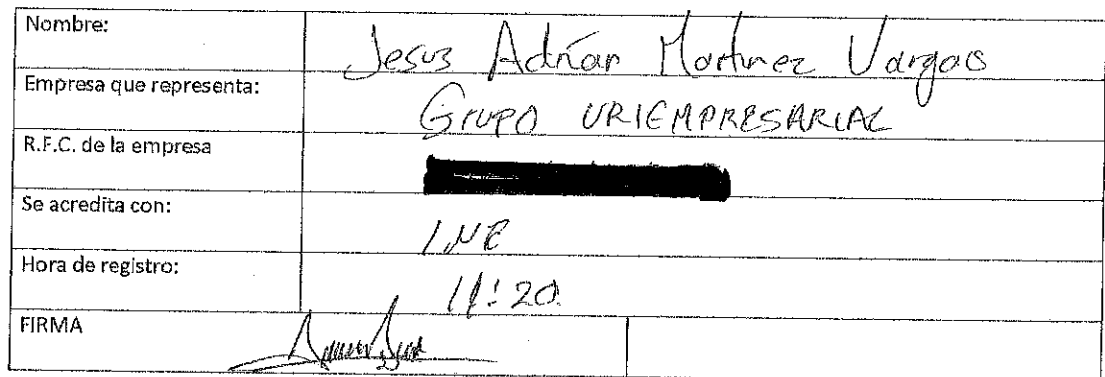 Nombre: Jesus Adrían Martinez Vargas
Empresa que representa: Grupo URIEMPRESARIAL
R.F.C. de la empresa
Se acredita con: INE
Hora de registro: 11:20
FIRMA